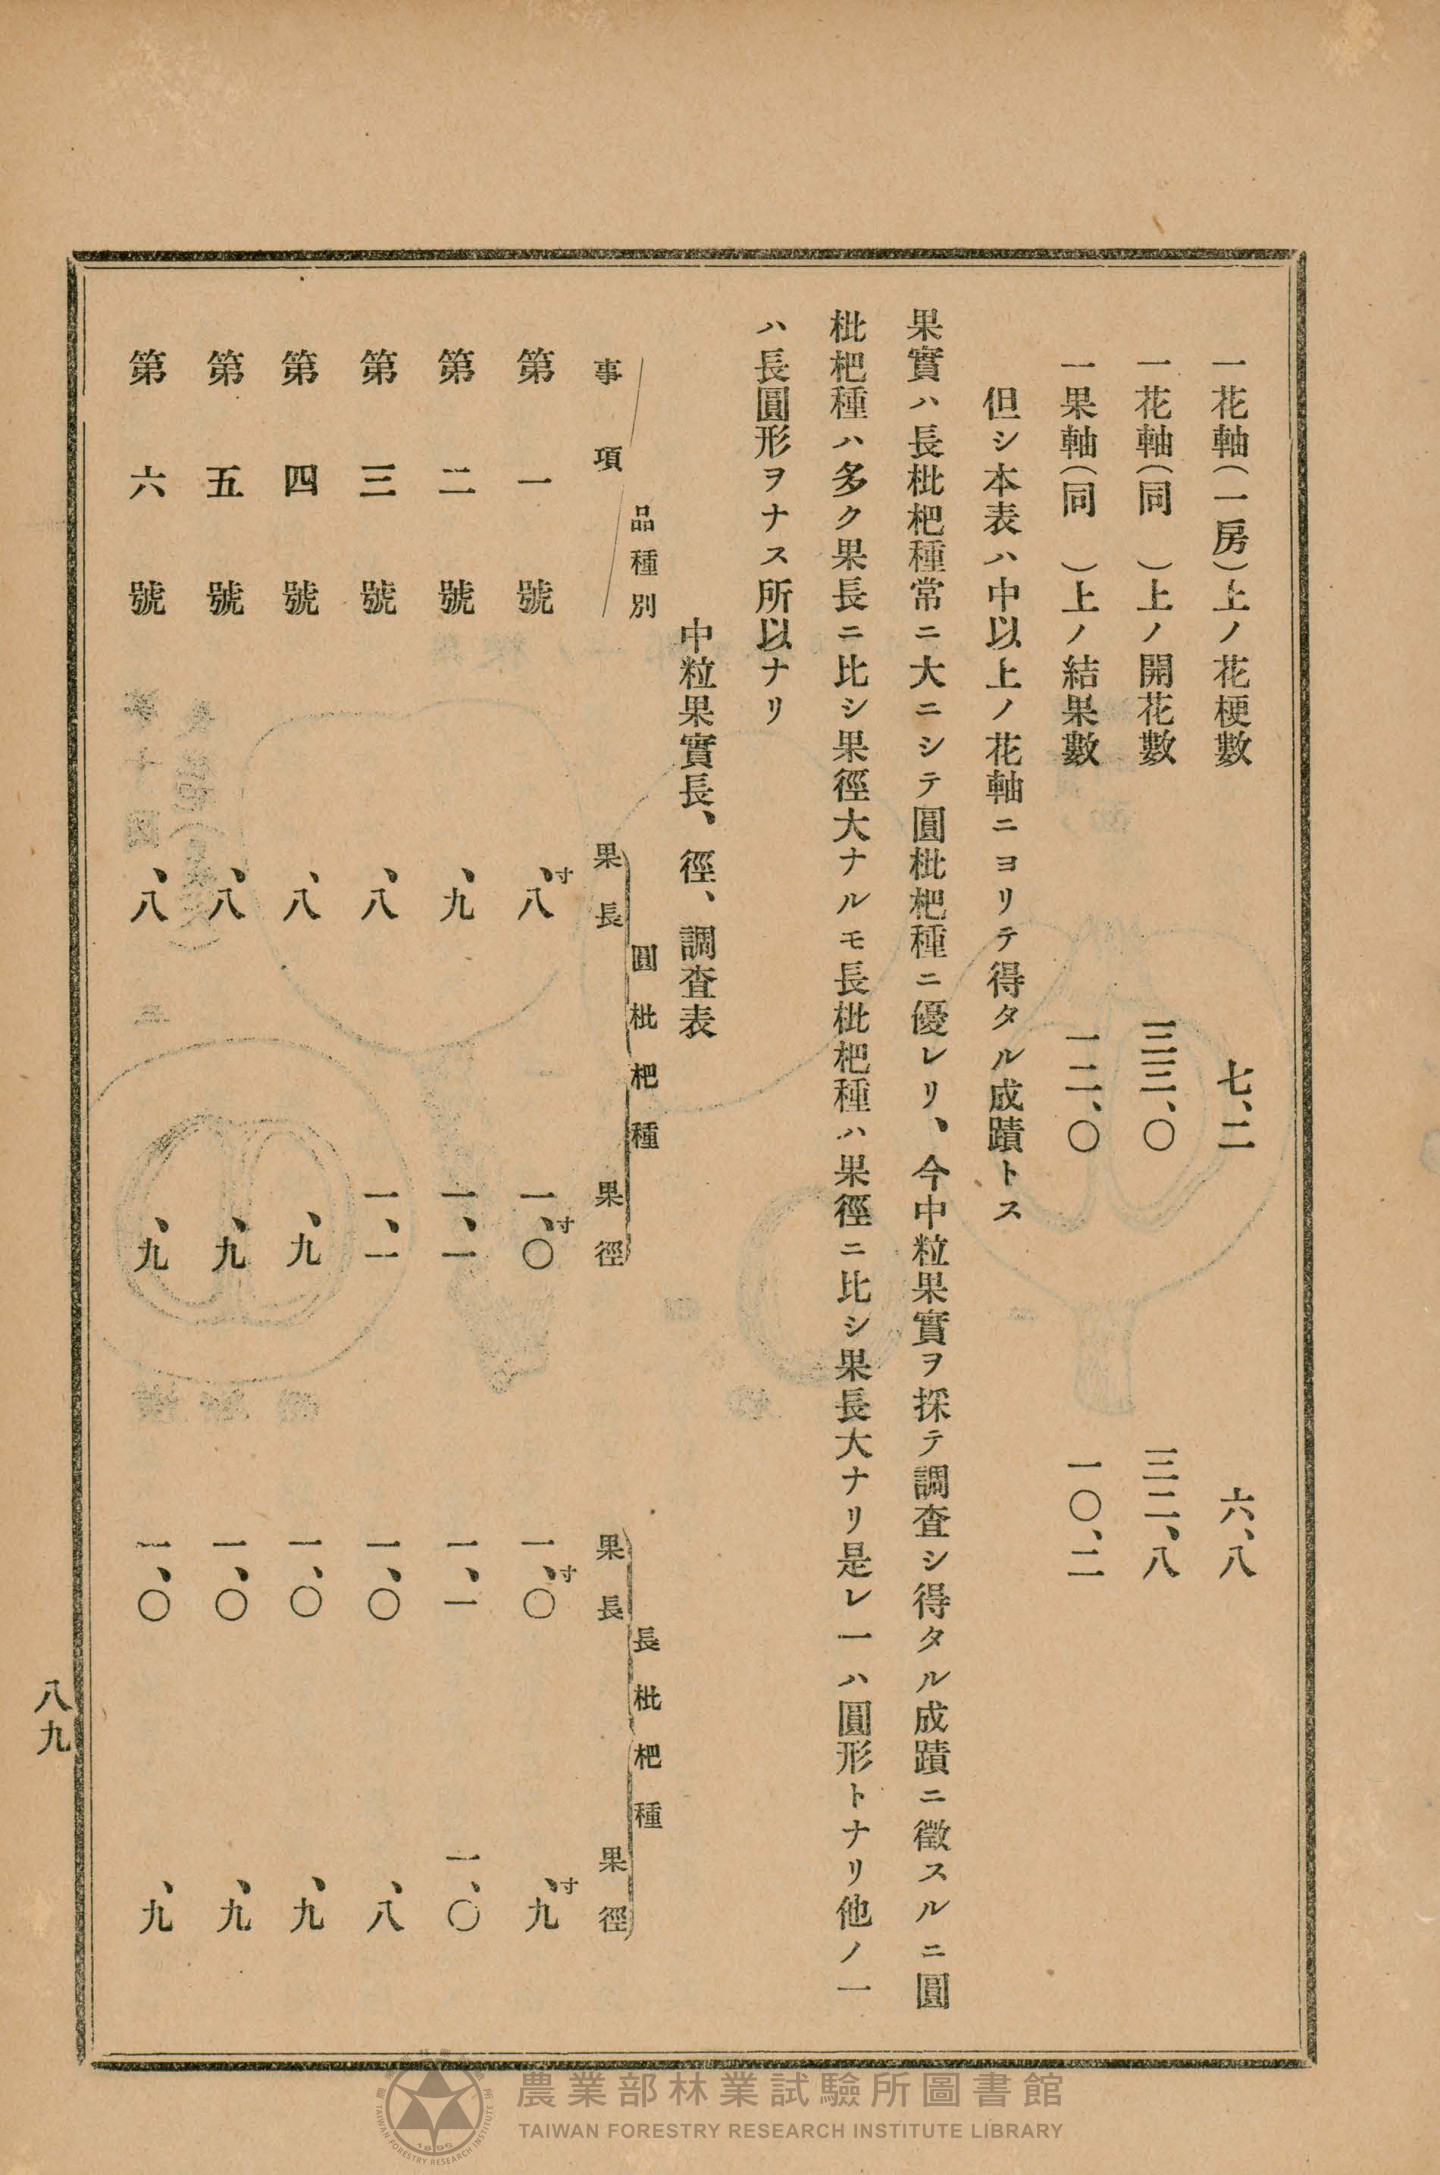 一花軸(一房)上ノ花梗數 七、二 六、八
一花軸(同 )上ノ開花數 三三、〇 三二、八
一果軸(同 )上ノ結果數 一二、〇 一〇、二
但シ本表ハ中以上ノ花軸ニヨリテ得タル成蹟トス
果實ハ長枇杷種常ニ大ニシテ圓枇杷種ニ優レリ、今中粒果實ヲ採テ調査シ得タル成蹟ニ徵スルニ圓
枇杷種ハ多ク果長ニ比シ果徑大ナルモ長枇杷種ハ果徑ニ比シ果長大ナリ是レ一ハ圓形トナリ他ノ一
ハ長圓形ヲナス所以ナリ
中粒果實長、徑、調査表
品種別 圓枇杷種 長枇杷種
事項 果長 果徑 果長 果徑
第一號 、八寸 一、〇寸 一、〇寸 、九寸
第二號 、九 一、一 一、一 一、〇
第三號 、八 一、一 一、〇 、八
第四號 、八 、九 一、〇 、九
第五號 、八 、九 一、〇 、九
第六號 、八 、九 一、〇 、九
八九
農業部林業試驗所圖書館
TAIWAN FORESTRY RESEARCH INSTITUTE LIBRARY